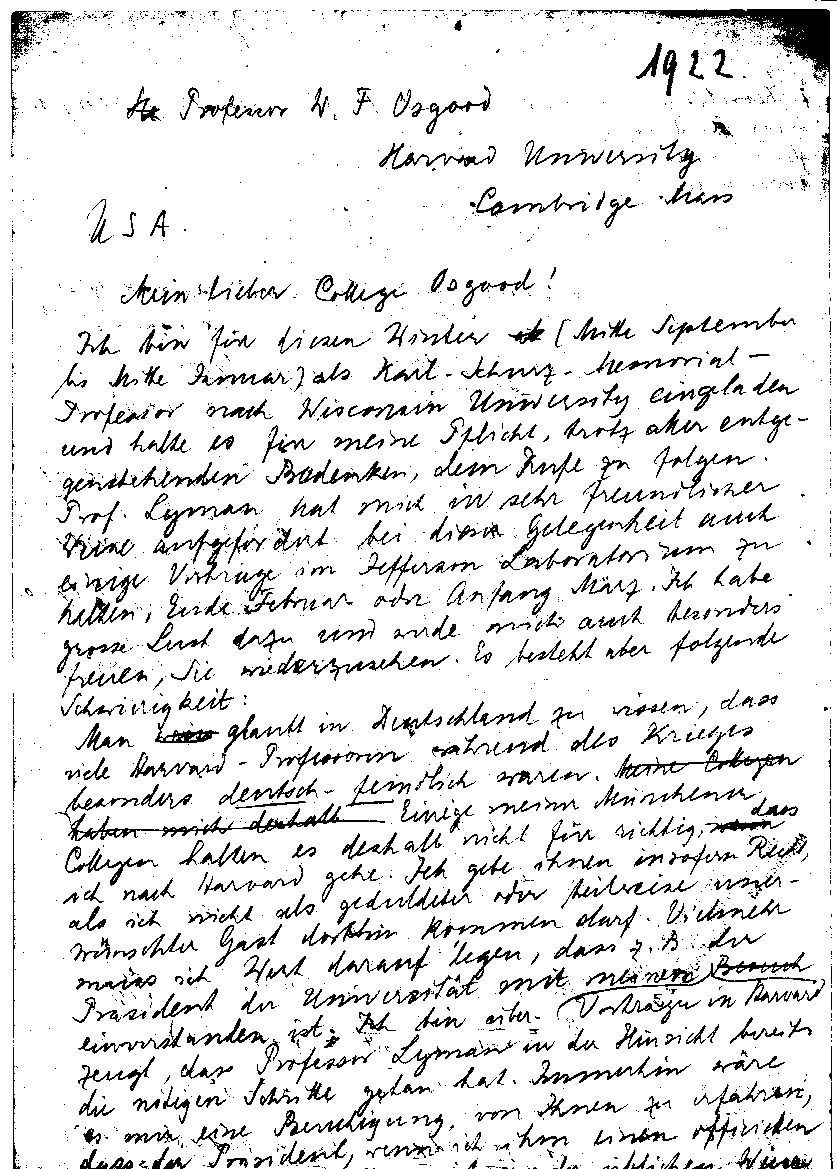 1922
Professor W. F. Osgood
Harvard University
Cambridge Mass
USA.
Mein lieber College Osgood!
Ich bin für diesen Winter (Mitte September
bis Mitte Januar) als Karl-Schurz-Memorial-
Professor nach Wisconsin University eingeladen
und halte es für meine Pflicht, trotz aller entge-
genstehenden Bedenken, dem Rufe zu folgen.
Prof. Lyman hat mich in sehr freundlicher
Weise aufgefordert bei dieser Gelegenheit auch
einige Vorträge im Jefferson Laboratorium zu
halten, Ende Februar oder Anfang März. Ich habe
grosse Lust dazu und würde mich auch besonders
freuen, Sie wiederzusehen. Es besteht aber folgende
Schwierigkeit:
Man glaubt in Deutschland zu wissen, dass
viele Harvard-Professoren während des Krieges
besonders deutsch-feindlich waren. Meine Collegen
haben mich deshalb Einige meiner Münchener
Collegen halten es deshalb nicht für richtig, dass
ich nach Harvard gehe. Ich gebe ihnen insofern Recht,
als ich nicht als geduldeter oder teilweise uner-
wünschter Gast dorthin kommen darf. Vielmehr
muss ich Wert darauf legen, dass z. B. der
Präsident der Universität mit meinem Besuch
einverstanden ist. Ich bin über- Vorträgen in Harvard
zeugt, dass Professor Lyman in der Hinsicht bereits
die nötigen Schritte getan hat. Immerhin wäre
es mir eine Beruhigung, von Ihnen zu erfahren,
dass der Präsident, wenn ich ihm einen officiellen